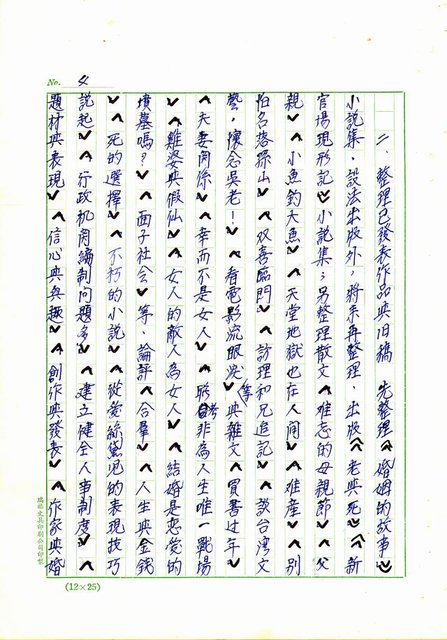 No. 4
二、整理已發表作品與旧稿　先整理︽婚姻的故事︾
小說集，設法出版外，將來再整理、出版︽老與死︾︽新
官場現形記︾小說集；另整理散文︿难忘的母親節﹀︿父
親﹀︿小魚釣大魚﹀︿天堂地獄也在人間﹀︿难產﹀︿別
怕名落孫山﹀︿双喜臨門﹀︿訪理和兄追記﹀︿談台湾文
藝，懷念吳老！﹀︿看電影流眼淚﹀等與雜文︿買書过年﹀
︿夫妻関係﹀︿幸而不是女人﹀︿聯考非為人生唯一戰場
﹀︿難婆與假仙﹀︿女人的敵人為女人﹀︿結婚是恋愛的
墳墓嗎？﹀︿面子社会﹀等，論評︿合羣﹀︿人生與金錢
﹀︿死的選擇﹀︿不朽的小說﹀︿從黛絲黛泥的表現技巧
說起﹀︿行政机関編制问題多﹀︿建立健全人事制度﹀︿
題材與表現﹀︿信心與兴趣﹀︿創作與發表﹀︿作家與婚
(12×25)